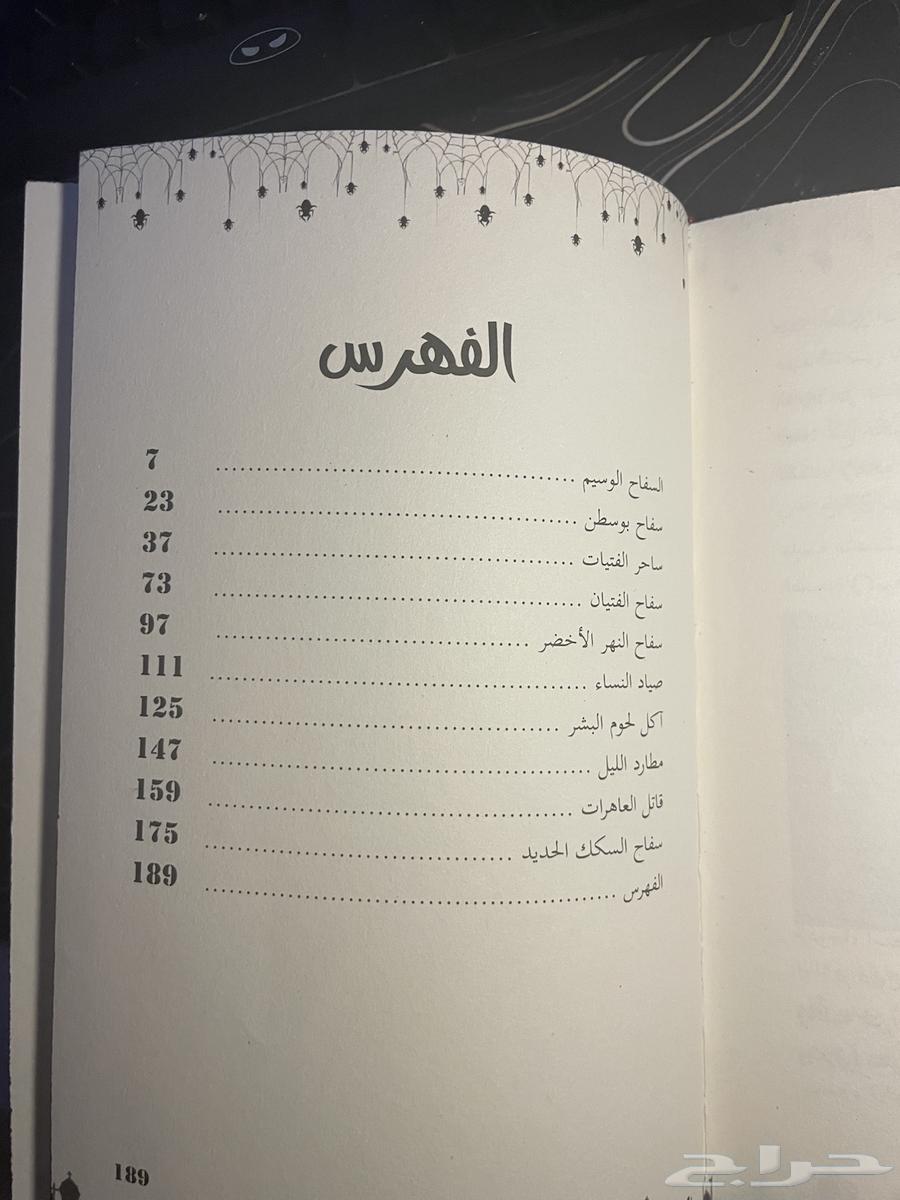 الفهرس
السفاح الوسيم ........................................ 7
سفاح بوسطن ........................................ 23
ساحر الفتيات ........................................ 37
سفاح الفتيان ........................................ 73
سفاح النهر الأخضر ........................................ 97
صياد النساء ........................................ 111
آكل لحوم البشر ........................................ 125
مطارد الليل ........................................ 147
قاتل العاهرات ........................................ 159
سفاح السكك الحديد ........................................ 175
الفهرس ........................................ 189
189
حراج